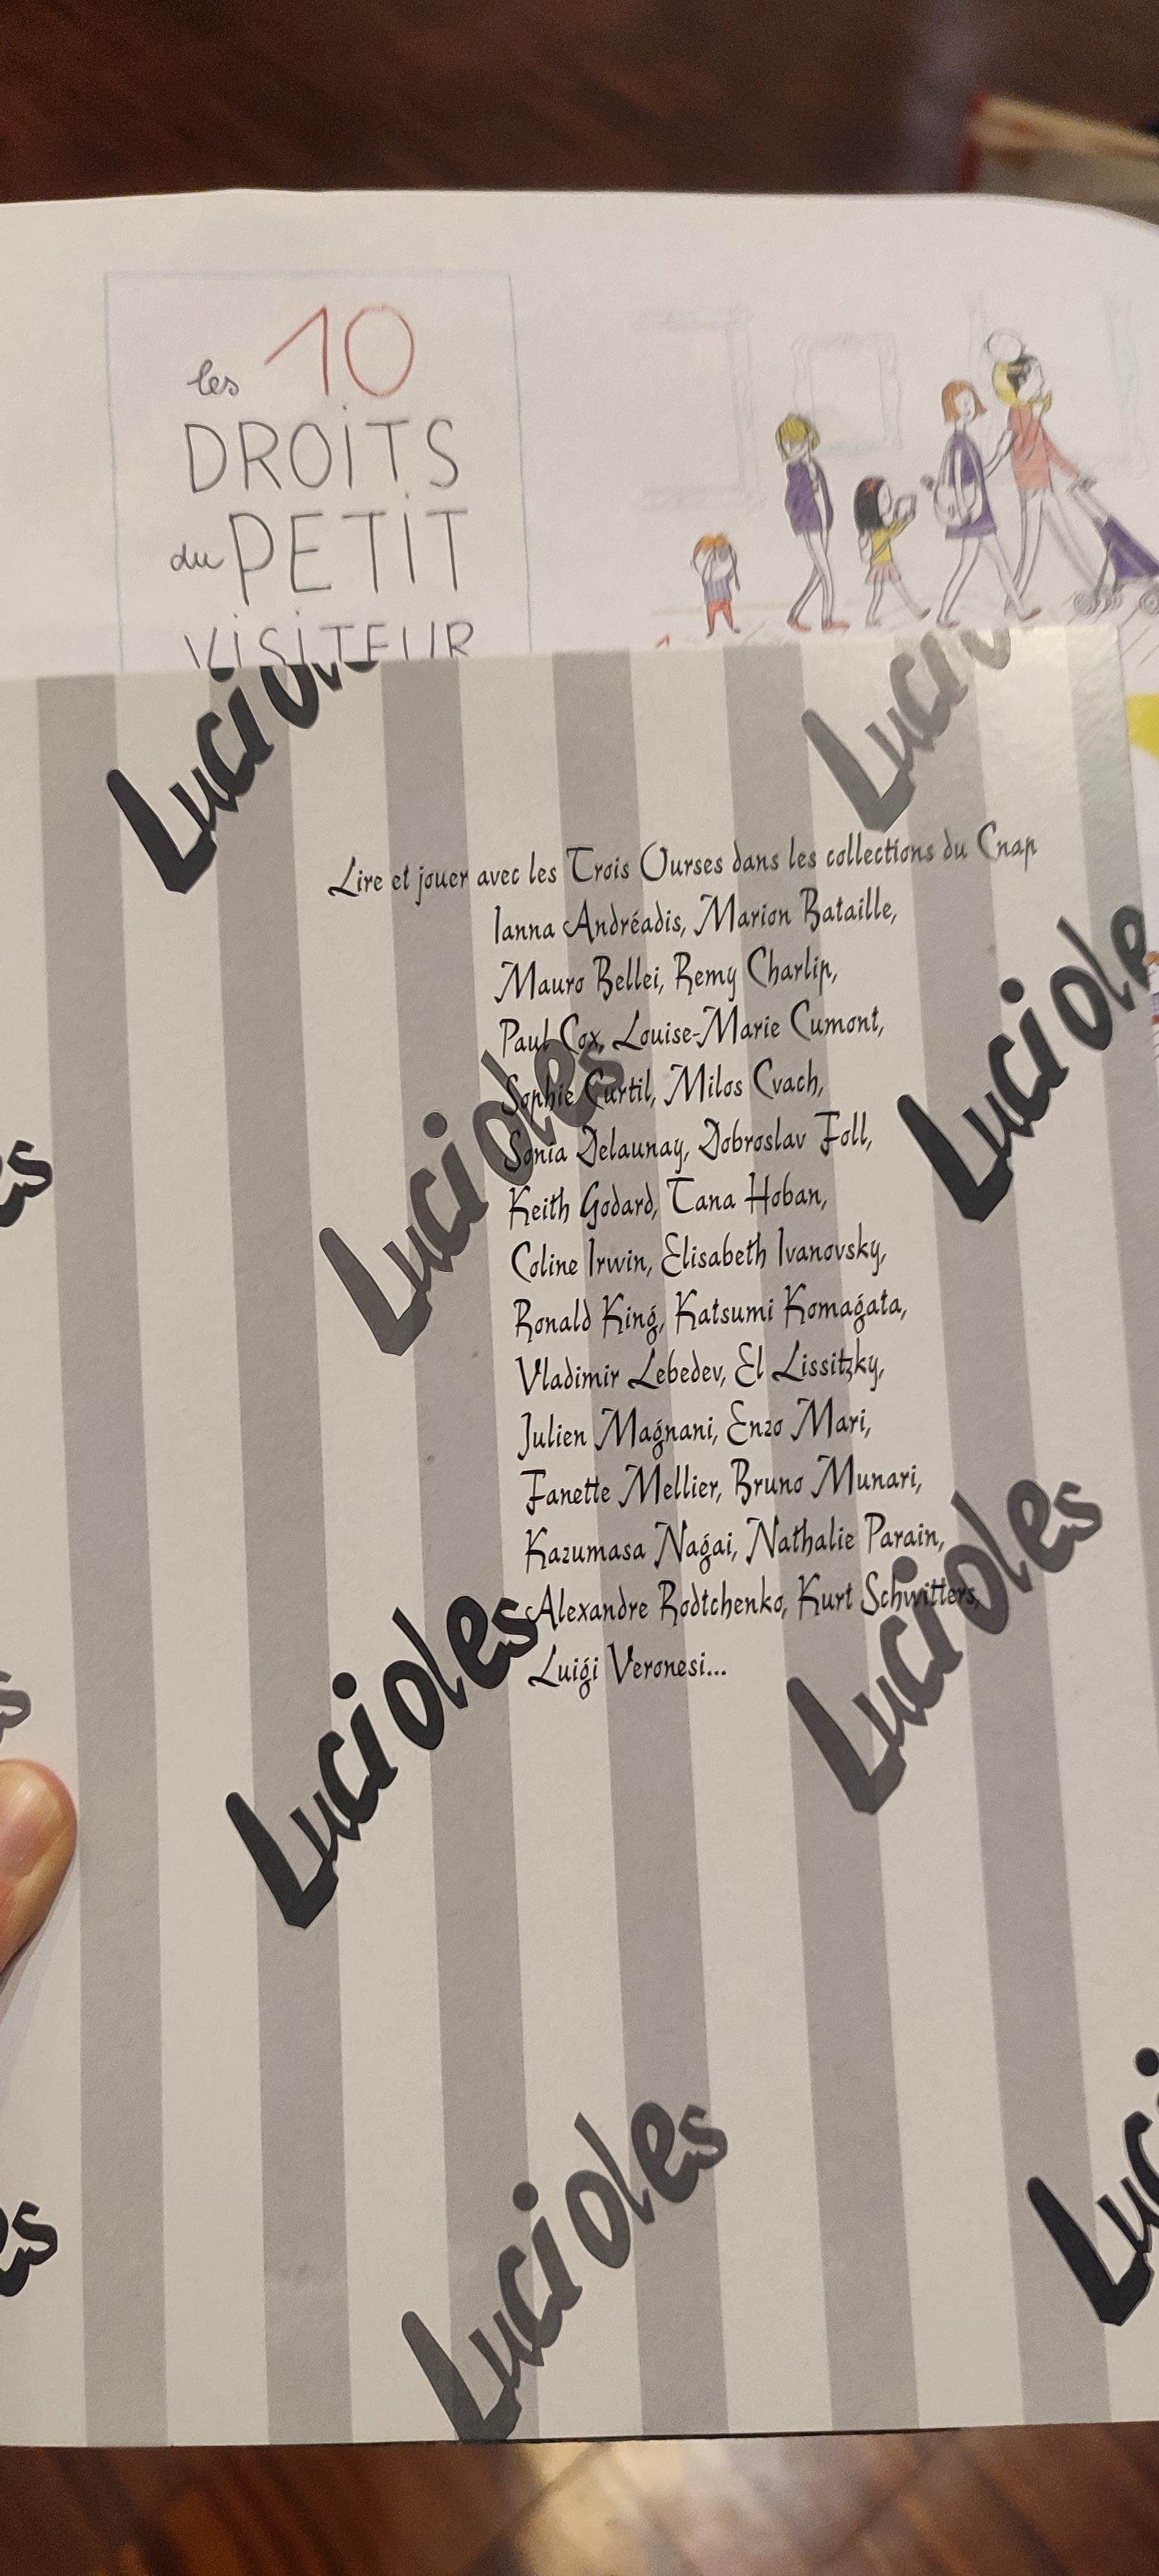 les 10
DROITS
du PETIT
VISITEUR
Lucioles
Lire et jouer avec les Trois Ourses dans les collections du Cnap
Ianna Andréadis, Marion Bataille,
Mauro Bellei, Remy Charlip,
Paul Cox, Louise-Marie Cumont,
Sophie Curtil, Milos Cvach,
Sonia Delaunay, Dobroslav Foll,
Keith Godard, Tana Hoban,
Coline Irwin, Elisabeth Ivanovsky,
Ronald King, Katsumi Komagata,
Vladimir Lebedev, El Lissitzky,
Julien Magnani, Enzo Mari,
Fanette Mellier, Bruno Munari,
Kazumasa Nagai, Nathalie Parain,
Alexandre Rodtchenko, Kurt Schwitters,
Luigi Veronesi...
Lucioles
Lucioles
Lucioles